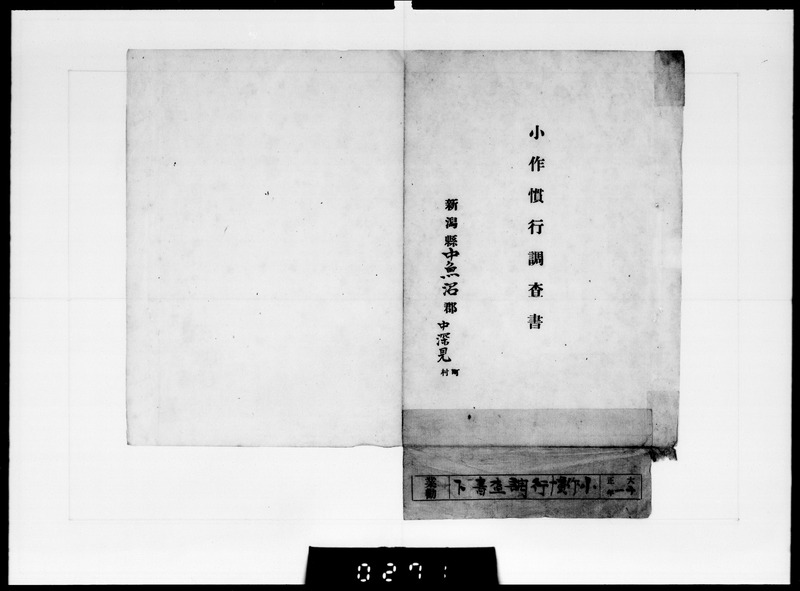 小作慣行調査書
新潟縣中魚沼郡中深見町村
大正
小作慣行調査書 下
勧業
0271